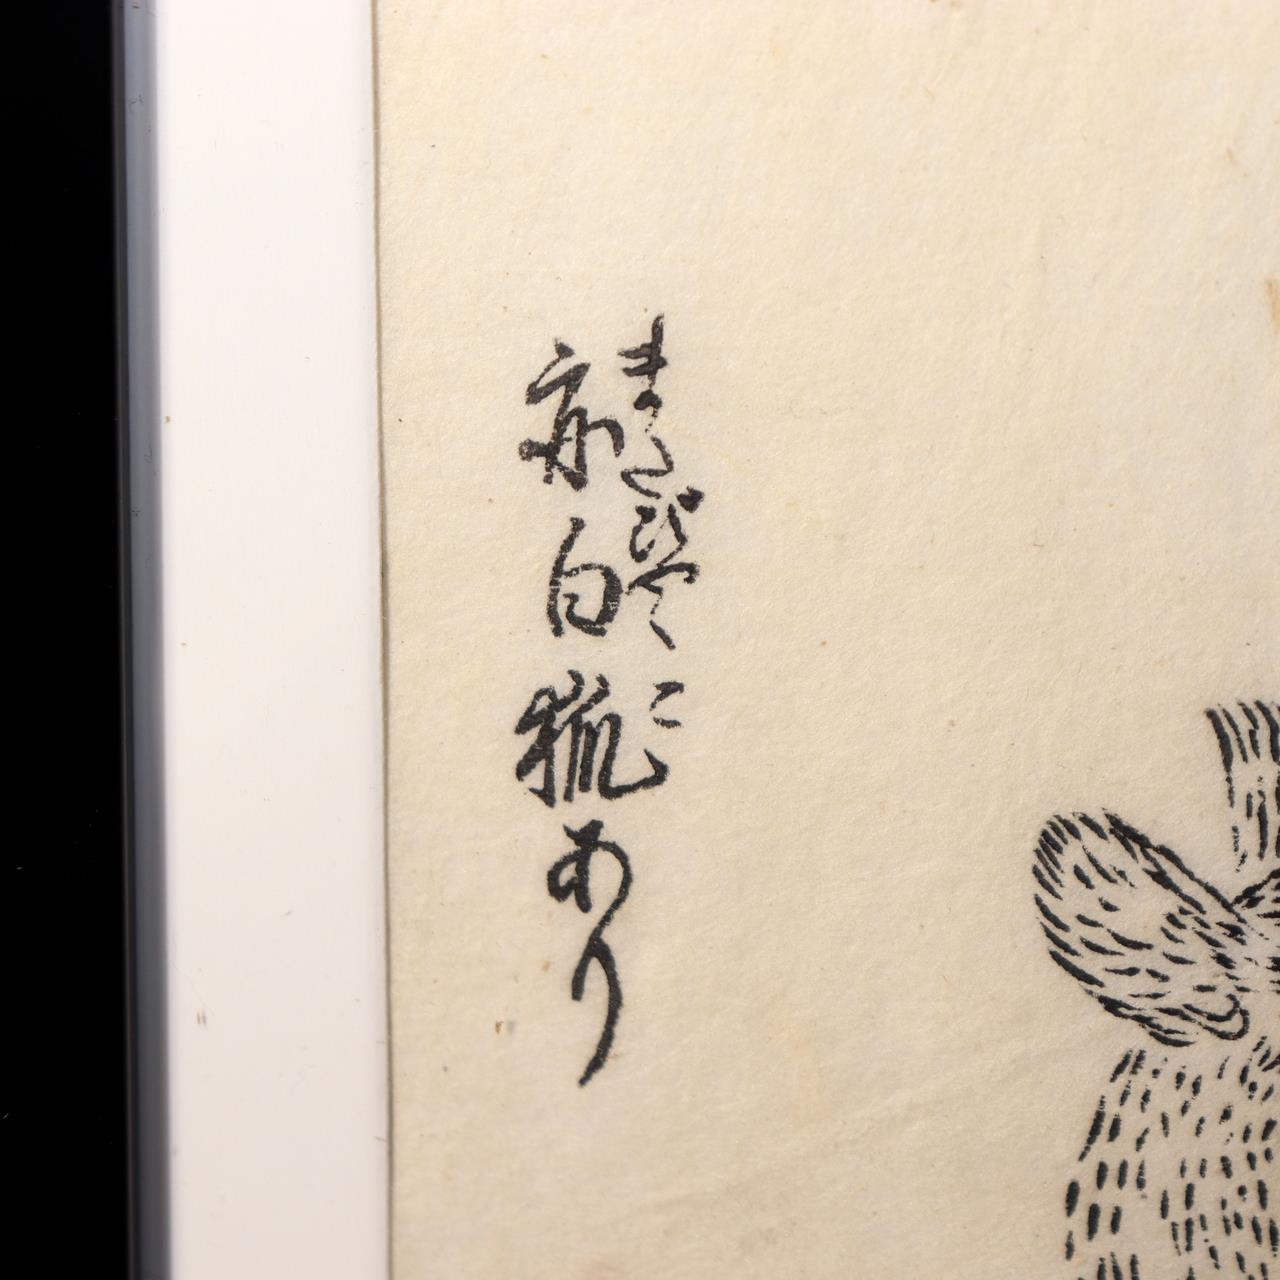 亦白狐あり
またびやくこ